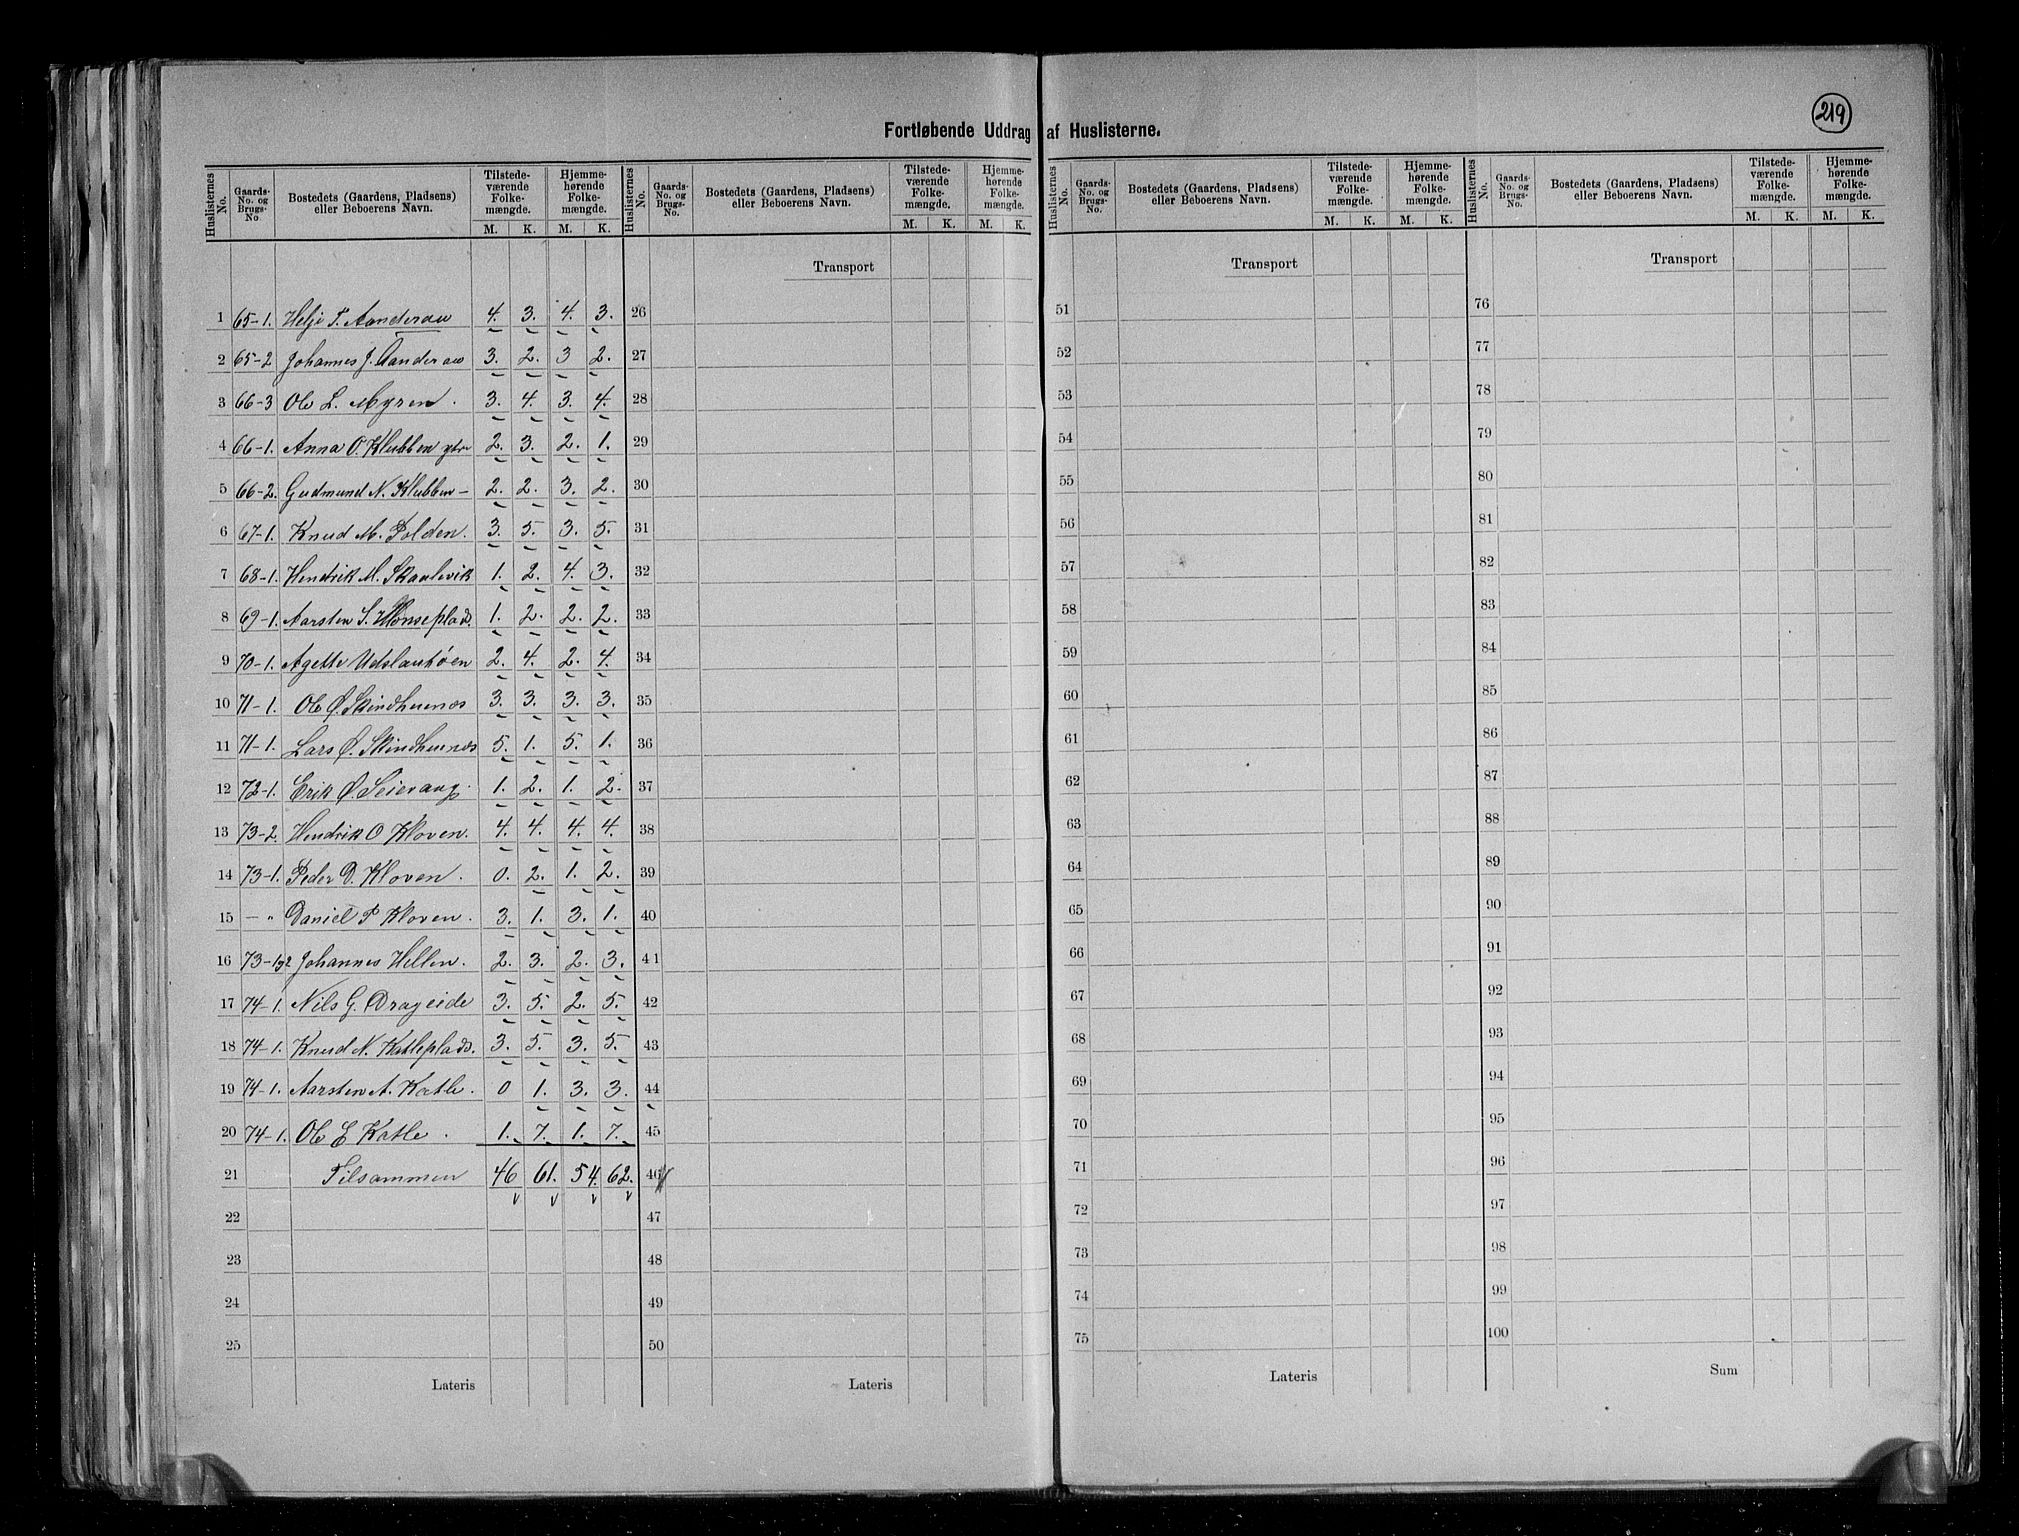 219
Fortløbende Uddrag af Huslisterne.
Huslisternes No. Gaards-No. og Brugs-No. Bostedets (Gaardens, Pladsens) eller Beboerens Navn. Tilstede-værende Folke-mængde. Hjemme-hørende Folke-mængde. M. K. M. K.
Huslisternes No. Gaards-No. og Brugs-No. Bostedets (Gaardens, Pladsens) eller Beboerens Navn. Tilstede-værende Folke-mængde. Hjemme-hørende Folke-mængde. M. K. M. K.
Huslisternes No. Gaards-No. og Brugs-No. Bostedets (Gaardens, Pladsens) eller Beboerens Navn. Tilstede-værende Folke-mængde. Hjemme-hørende Folke-mængde. M. K. M. K.
Huslisternes No. Gaards-No. og Brugs-No. Bostedets (Gaardens, Pladsens) eller Beboerens Navn. Tilstede-værende Folke-mængde. Hjemme-hørende Folke-mængde. M. K. M. K.
Transport Transport Transport
1 65-1. Helje T. Aanderaa 4. 3. 4. 3. 26 51 76
2 65-2 Johannes J. Aanderaa 3. 2. 3 2. 27 52 77
3 66-3 Ole L. Myren. 3. 4. 3. 4. 28 53 78
4 66-1. Anna O. Klubben ytre 2. 3. 2. 1. 29 54 79
5 66-2. Gudmund N. Klubben - 2. 2. 3. 2. 30 55 80
6 67-1. Knud M. Polden. 3. 5. 3. 5. 31 56 81
7 68-1. Hendrik M. Skaalevik 1. 2. 4. 3. 32 57 82
8 69-1. Aarsten S. Hønseplads. 1. 2. 2. 2. 33 58 83
9 70-1. Agette 2. 4. 2. 4. 34 59 84
10 71-1. Ole Ø. Skindhuenæs 3. 3. 3. 3. 35 60 85
11 71-1. Lars Ø. Skindhuenæs 5. 1. 5. 1. 36 61 86
12 72-1. Erik Ø. 1. 2. 1. 2. 37 62 87
13 73-2. Hendrik O Kloven. 4. 4. 4. 4. 38 63 88
14 73-1. Peder D. Kloven. 0. 2. 1. 2. 39 64 89
15 — " Daniel P Kloven. 3. 1. 3. 1. 40 65 90
16 73-1g2 Johannes Hellen. 2. 3. 2. 3. 41 66 91
17 74-1. Nils G. Drageide 3. 5. 2. 5. 42 67 92
18 74-1. Knud N. Katleplads. 3. 5. 3. 5. 43 68 93
19 74-1. Aarsten A. Katle. 0 1. 3. 3. 44 69 94
20 74-1. Ole E Katle. 1. 7. 1. 7. 45 70 95
21 Tilsammen 46 61. 54. 62. 46 71 96
22 47 72 97
23 48 73 98
24 49 74 99
25 50 75 100
Lateris Lateris Lateris Sum